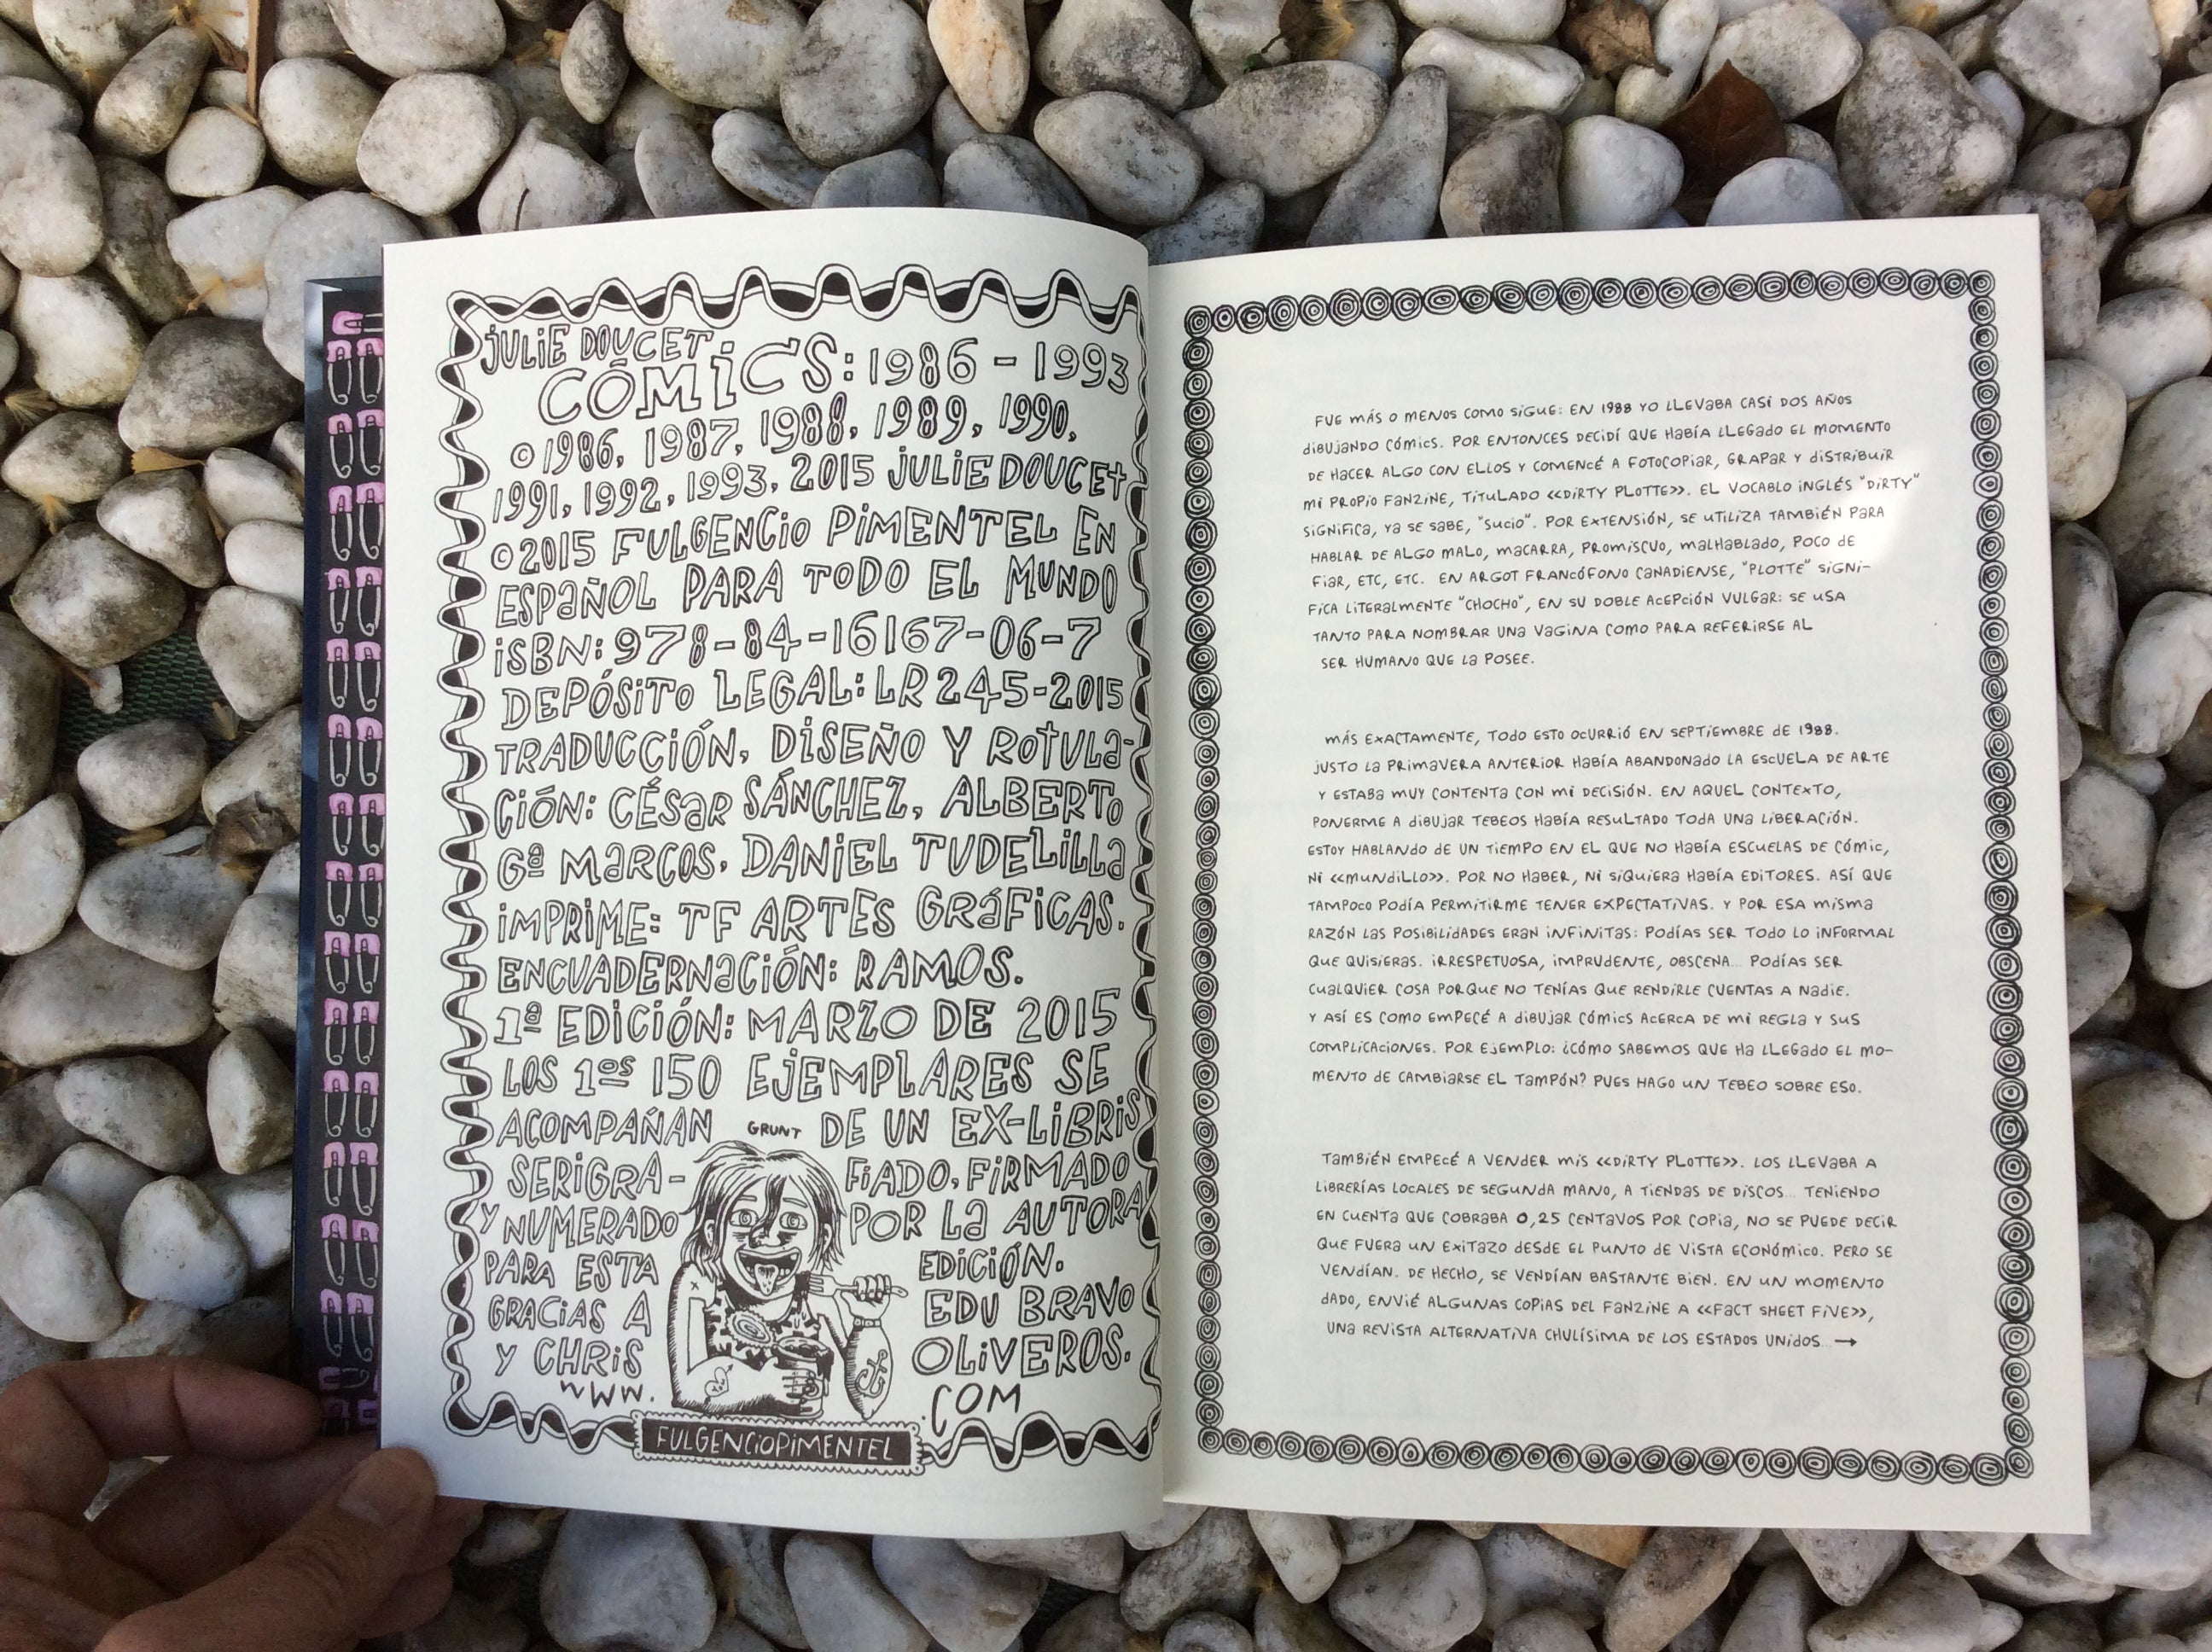 JULIE DOUCET
CÓMICS: 1986 - 1993
©1986, 1987, 1988, 1989, 1990,
1991, 1992, 1993, 2015 JULIE DOUCET
©2015 FULGENCIO PIMENTEL EN
ESPAÑOL PARA TODO EL MUNDO
ISBN: 978-84-16167-06-7
DEPÓSITO LEGAL: LR 245-2015
TRADUCCIÓN, DISEÑO Y ROTULA-
CIÓN: CÉSAR SÁNCHEZ, ALBERTO
Gª MARCOS, DANIEL TUDELILLA
IMPRIME: TF ARTES GRÁFICAS.
ENCUADERNACIÓN: RAMOS.
1ª EDICIÓN: MARZO DE 2015
LOS 1os 150 EJEMPLARES SE
ACOMPAÑAN GRUNT DE UN EX-LIBRIS
SERIGRA- FIADO, FIRMADO
Y NUMERADO POR LA AUTORA
PARA ESTA EDICIÓN.
GRACIAS A EDU BRAVO
Y CHRIS OLIVEROS.
WWW. .COM
FULGENCIOPIMENTEL
FUE MÁS O MENOS COMO SIGUE: EN 1988 YO LLEVABA CASI DOS AÑOS
DIBUJANDO CÓMICS. POR ENTONCES DECIDÍ QUE HABÍA LLEGADO EL MOMENTO
DE HACER ALGO CON ELLOS Y COMENCÉ A FOTOCOPIAR, GRAPAR Y DISTRIBUIR
MI PROPIO FANZINE, TITULADO «DIRTY PLOTTE». EL VOCABLO INGLÉS "DIRTY"
SIGNIFICA, YA SE SABE, "SUCIO". POR EXTENSIÓN, SE UTILIZA TAMBIÉN PARA
HABLAR DE ALGO MALO, MACARRA, PROMISCUO, MALHABLADO, POCO DE
FIAR, ETC, ETC. EN ARGOT FRANCÓFONO CANADIENSE, "PLOTTE" SIGNI-
FICA LITERALMENTE "CHOCHO", EN SU DOBLE ACEPCIÓN VULGAR: SE USA
TANTO PARA NOMBRAR UNA VAGINA COMO PARA REFERIRSE AL
SER HUMANO QUE LA POSEE.
MÁS EXACTAMENTE, TODO ESTO OCURRIÓ EN SEPTIEMBRE DE 1988.
JUSTO LA PRIMAVERA ANTERIOR HABÍA ABANDONADO LA ESCUELA DE ARTE
Y ESTABA MUY CONTENTA CON MI DECISIÓN. EN AQUEL CONTEXTO,
PONERME A DIBUJAR TEBEOS HABÍA RESULTADO TODA UNA LIBERACIÓN.
ESTOY HABLANDO DE UN TIEMPO EN EL QUE NO HABÍA ESCUELAS DE CÓMIC,
NI «MUNDILLO». POR NO HABER, NI SIQUIERA HABÍA EDITORES. ASÍ QUE
TAMPOCO PODÍA PERMITIRME TENER EXPECTATIVAS. Y POR ESA MISMA
RAZÓN LAS POSIBILIDADES ERAN INFINITAS: PODÍAS SER TODO LO INFORMAL
QUE QUISIERAS. IRRESPETUOSA, IMPRUDENTE, OBSCENA... PODÍAS SER
CUALQUIER COSA PORQUE NO TENÍAS QUE RENDIRLE CUENTAS A NADIE.
Y ASÍ ES COMO EMPECÉ A DIBUJAR CÓMICS ACERCA DE MI REGLA Y SUS
COMPLICACIONES. POR EJEMPLO: ¿CÓMO SABEMOS QUE HA LLEGADO EL MO-
MENTO DE CAMBIARSE EL TAMPÓN? PUES HAGO UN TEBEO SOBRE ESO.
TAMBIÉN EMPECÉ A VENDER MIS «DIRTY PLOTTE». LOS LLEVABA A
LIBRERÍAS LOCALES DE SEGUNDA MANO, A TIENDAS DE DISCOS... TENIENDO
EN CUENTA QUE COBRABA 0,25 CENTAVOS POR COPIA, NO SE PUEDE DECIR
QUE FUERA UN EXITAZO DESDE EL PUNTO DE VISTA ECONÓMICO. PERO SE
VENDÍAN. DE HECHO, SE VENDÍAN BASTANTE BIEN. EN UN MOMENTO
DADO, ENVIÉ ALGUNAS COPIAS DEL FANZINE A «FACT SHEET FIVE»,
UNA REVISTA ALTERNATIVA CHULÍSIMA DE LOS ESTADOS UNIDOS... →